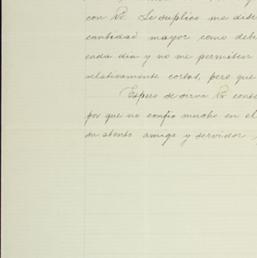 con V. Le suplico me dis
cantidad mayor como deb
cada día y no me permiten
relativamente cortas, pero que
Espero de su V. conte
por que no confío mucho en el
su atento amigo y servidor